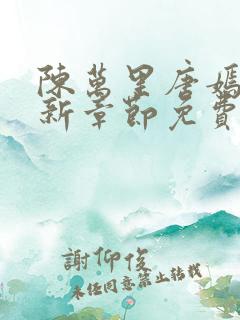 陳萬里唐嫣
新章節免費
謝仰俊
未經同意禁止轉載